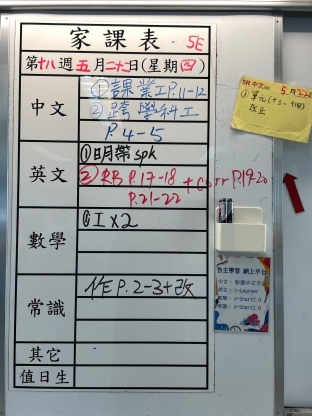 家課表 5E
第十八週五月二十二日(星期四)
中文
①課業工P.11-12
②跨學科工
P.4-5
英文
①明帶spk
②RB P.17-18 + corr P.19-20
P.21-22
數學
GI x2
常識
作P.2-3+改
其它
值日生
5月22日
改正
自主學習 網上平台